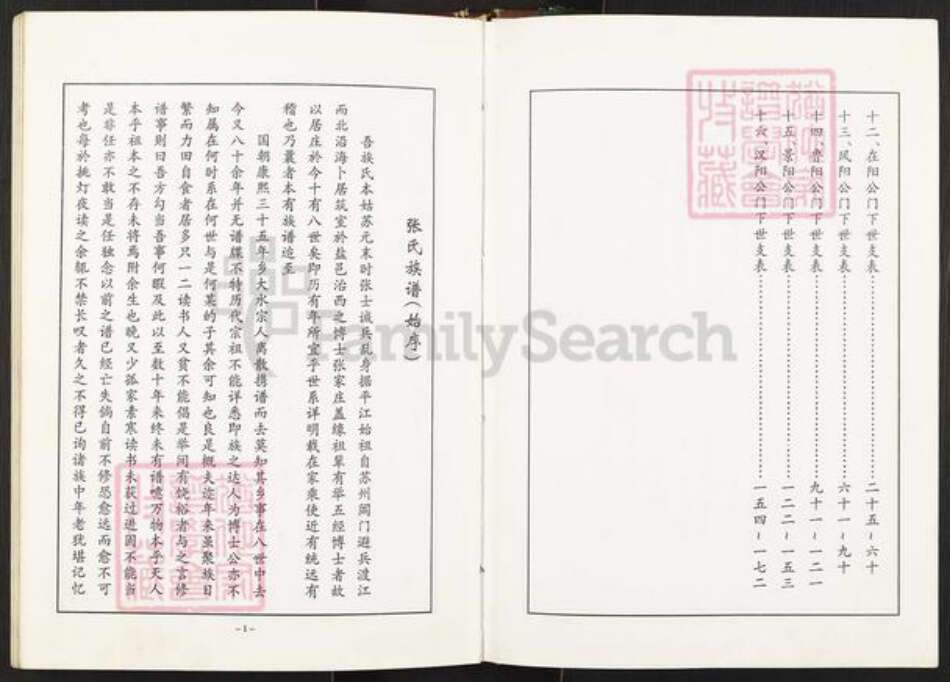 十二、在阳公门下世支表……………………二十五~六十
十三、凤阳公门下世支表……………………六十一~九十
十四、鲁阳公门下世支表……………………九十一~一二一
十五、景阳公门下世支表……………………一二二~一五三
十六、汉阳公门下世支表……………………一五四~一七二
张氏族谱(始序)
吾族氏本姑苏元末时张士诚兵乱身据平江始祖自苏州阊门避兵渡江
而北沿海卜居筑室於盐邑治西之博士张家庄盖缘祖辈有举五经博士者故
以居庄於今十有八世矣即历有年所宜乎世系详明载在家乘使近有统远有
稽也乃曩者本有族谱迨至
国朝康熙三十五年乡大水宗人离散携谱而去莫知其乡事在八世中去
今又八十余年并无谱牒不特历代宗祖不能详悉即族之达人为博士公亦不
知属在何时系在何世与是何某的子其余可知也良是慨夫迩年来虽聚族日
繁而力田自食者居多只一二读书人又贫不能倡是举间有饶裕者与之言修
谱事则曰吾方勾当吾事何暇及此以至数十年来终未有谱噫万物本乎天人
本乎祖本之不存未将焉附余生也晚又少孤家素寒读书未获过进固不能当
是非任亦不敢当是任独念以前之谱已经亡失倘自前不修恐愈远而愈不可
考也每於挑灯夜读之余辄不禁长叹者久之不得已询诸族中年老犹堪记忆
-1-
FamilySearch